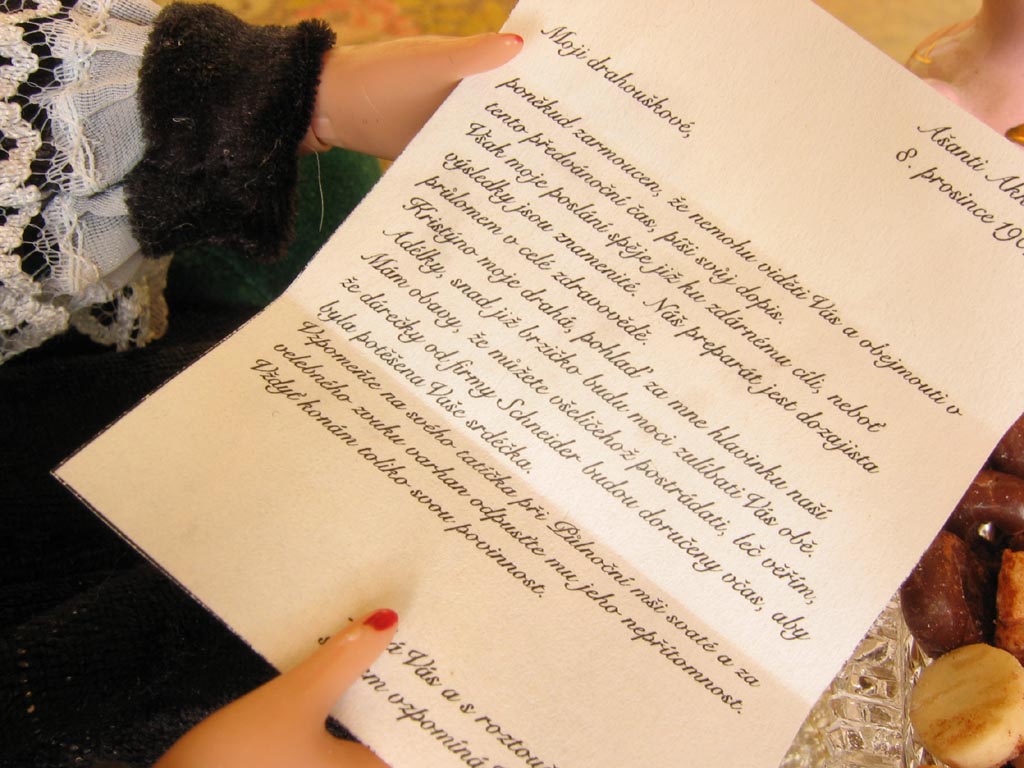 Ašanti
8. prosince
Moji drahouškové,
poněkud zarmoucen, že nemohu viděti Vás a obejmouti v
tento předvánoční čas, píši svůj dopis.
Však moje poslání spěje již ku zdárnému cíli, neboť
výsledky jsou znamenité. Náš preparát jest dozajista
průlomen v celé zdravovědě.
Kristýno moje drahá, pohlaď za mne hlavinku naší
Adélky, snad již brzičko budu moci zulíbati Vás obě.
Mám obavy, že můžete všeličehož postrádati, leč věřím,
že dárečky od firmy Schneider budou doručeny včas, aby
byla potěšena Vaše srdéčka.
Vzpomeňte na svého tatíčka při Půlnoční mši svaté a za
velebného zvuku varhan odpusťte mu jeho nepřítomnost.
Vždyť konám toliko svou povinnost.
Vás a s
vzpomíná